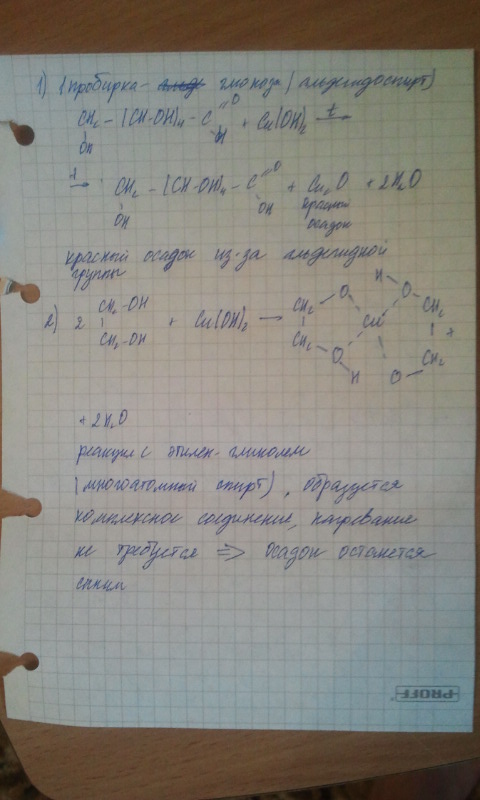 1) 1 пробирка - глюкоза (альдегидоспирт)
CH₂ - (CH-OH)₄ - C =O H + Cu(OH)₂ t→
OH
t→ CH₂ - (CH-OH)₄ - C =O OH + Cu₂O + 2H₂O
OH красный
осадок
красный осадок из-за альдегидной
группы
2) 2 CH₂-OH CH₂-OH + Cu(OH)₂ → CH₂ O CH₂ O H Cu H O CH₂ O CH₂ +
+ 2H₂O
реакция с этилен-гликолем
(многоатомный спирт), образуется
комплексное соединение, нагревание
не требуется => осадок останется
синим
PROFF